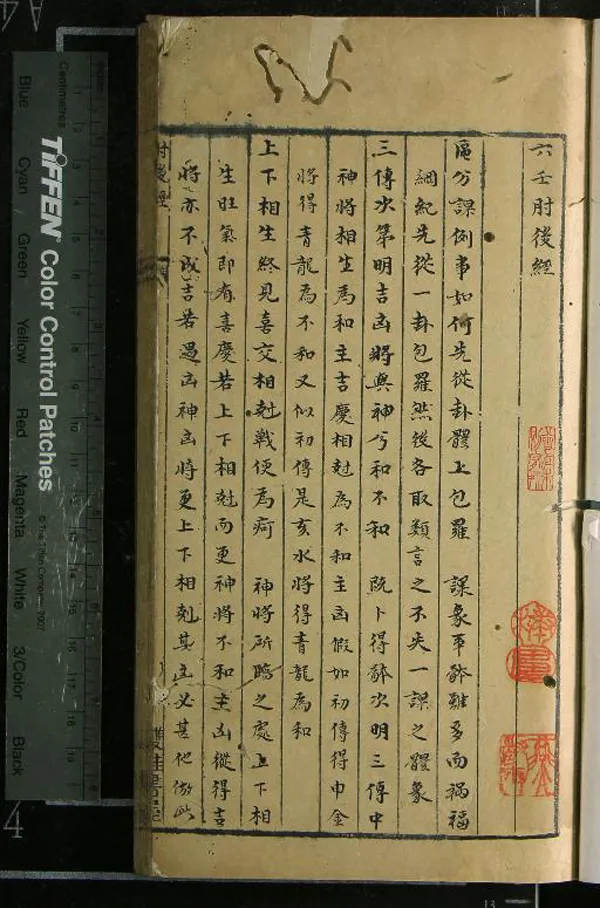 六壬肘後經
區分課例事如何先從卦體上包羅 課象事體雖多而禍福
綱紀先從一卦包羅然後各取類言之不失一課之體象
三傳次第明吉凶將與神兮和不和 既卜得體次明三傳中
神將相生為和主吉慶相尅為不和主凶假如初傳得申金
將得青龍為不和又似初傳是亥水將得青龍為和
上下相生終見喜交相尅戰便為疴 神將所臨之處上下相
生旺氣即有喜慶若上下相尅而更神將不和主凶縱得吉
將亦不成吉若遇凶神凶將更上下相剋其凶必甚他倣此
肘後經
TIFFEN® Color Control Patches
© The Tiffen Company, 2007
Centimetres
Blue Cyan Green Yellow Red Magenta White 3/Color Black
A4
4
13